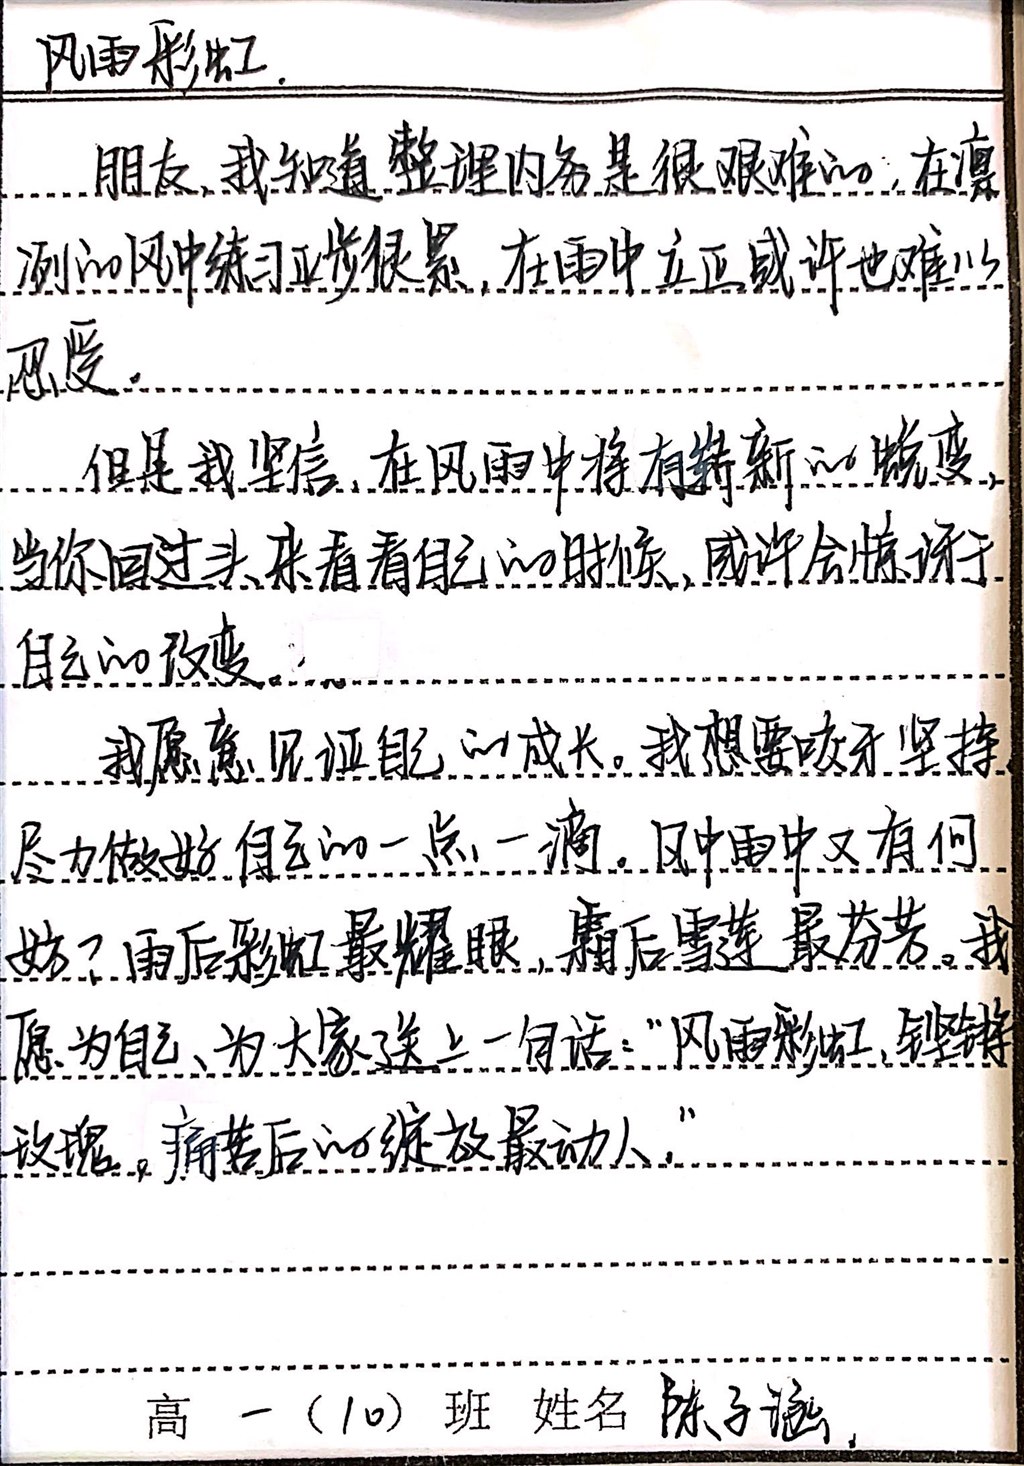 风雨彩虹.
朋友,我知道整理内务是很艰难的,在凛
冽的风中练习正步很累,在雨中立正或许也难以
忍受.
但是我坚信,在风雨中将有崭新的蜕变,
当你回过头来看看自己的时候,或许会惊讶于
自己的改变。
我愿意见证自己的成长。我想要咬牙坚持,
尽力做好自己的一点一滴。风中雨中又有何
妨?雨后彩虹最耀眼,霜后雪莲最芬芳。我
愿为自己、为大家送上一句话:“风雨彩虹,铿锵
玫瑰。痛苦后的绽放最动人.”
高一(10)班 姓名 陈子涵.